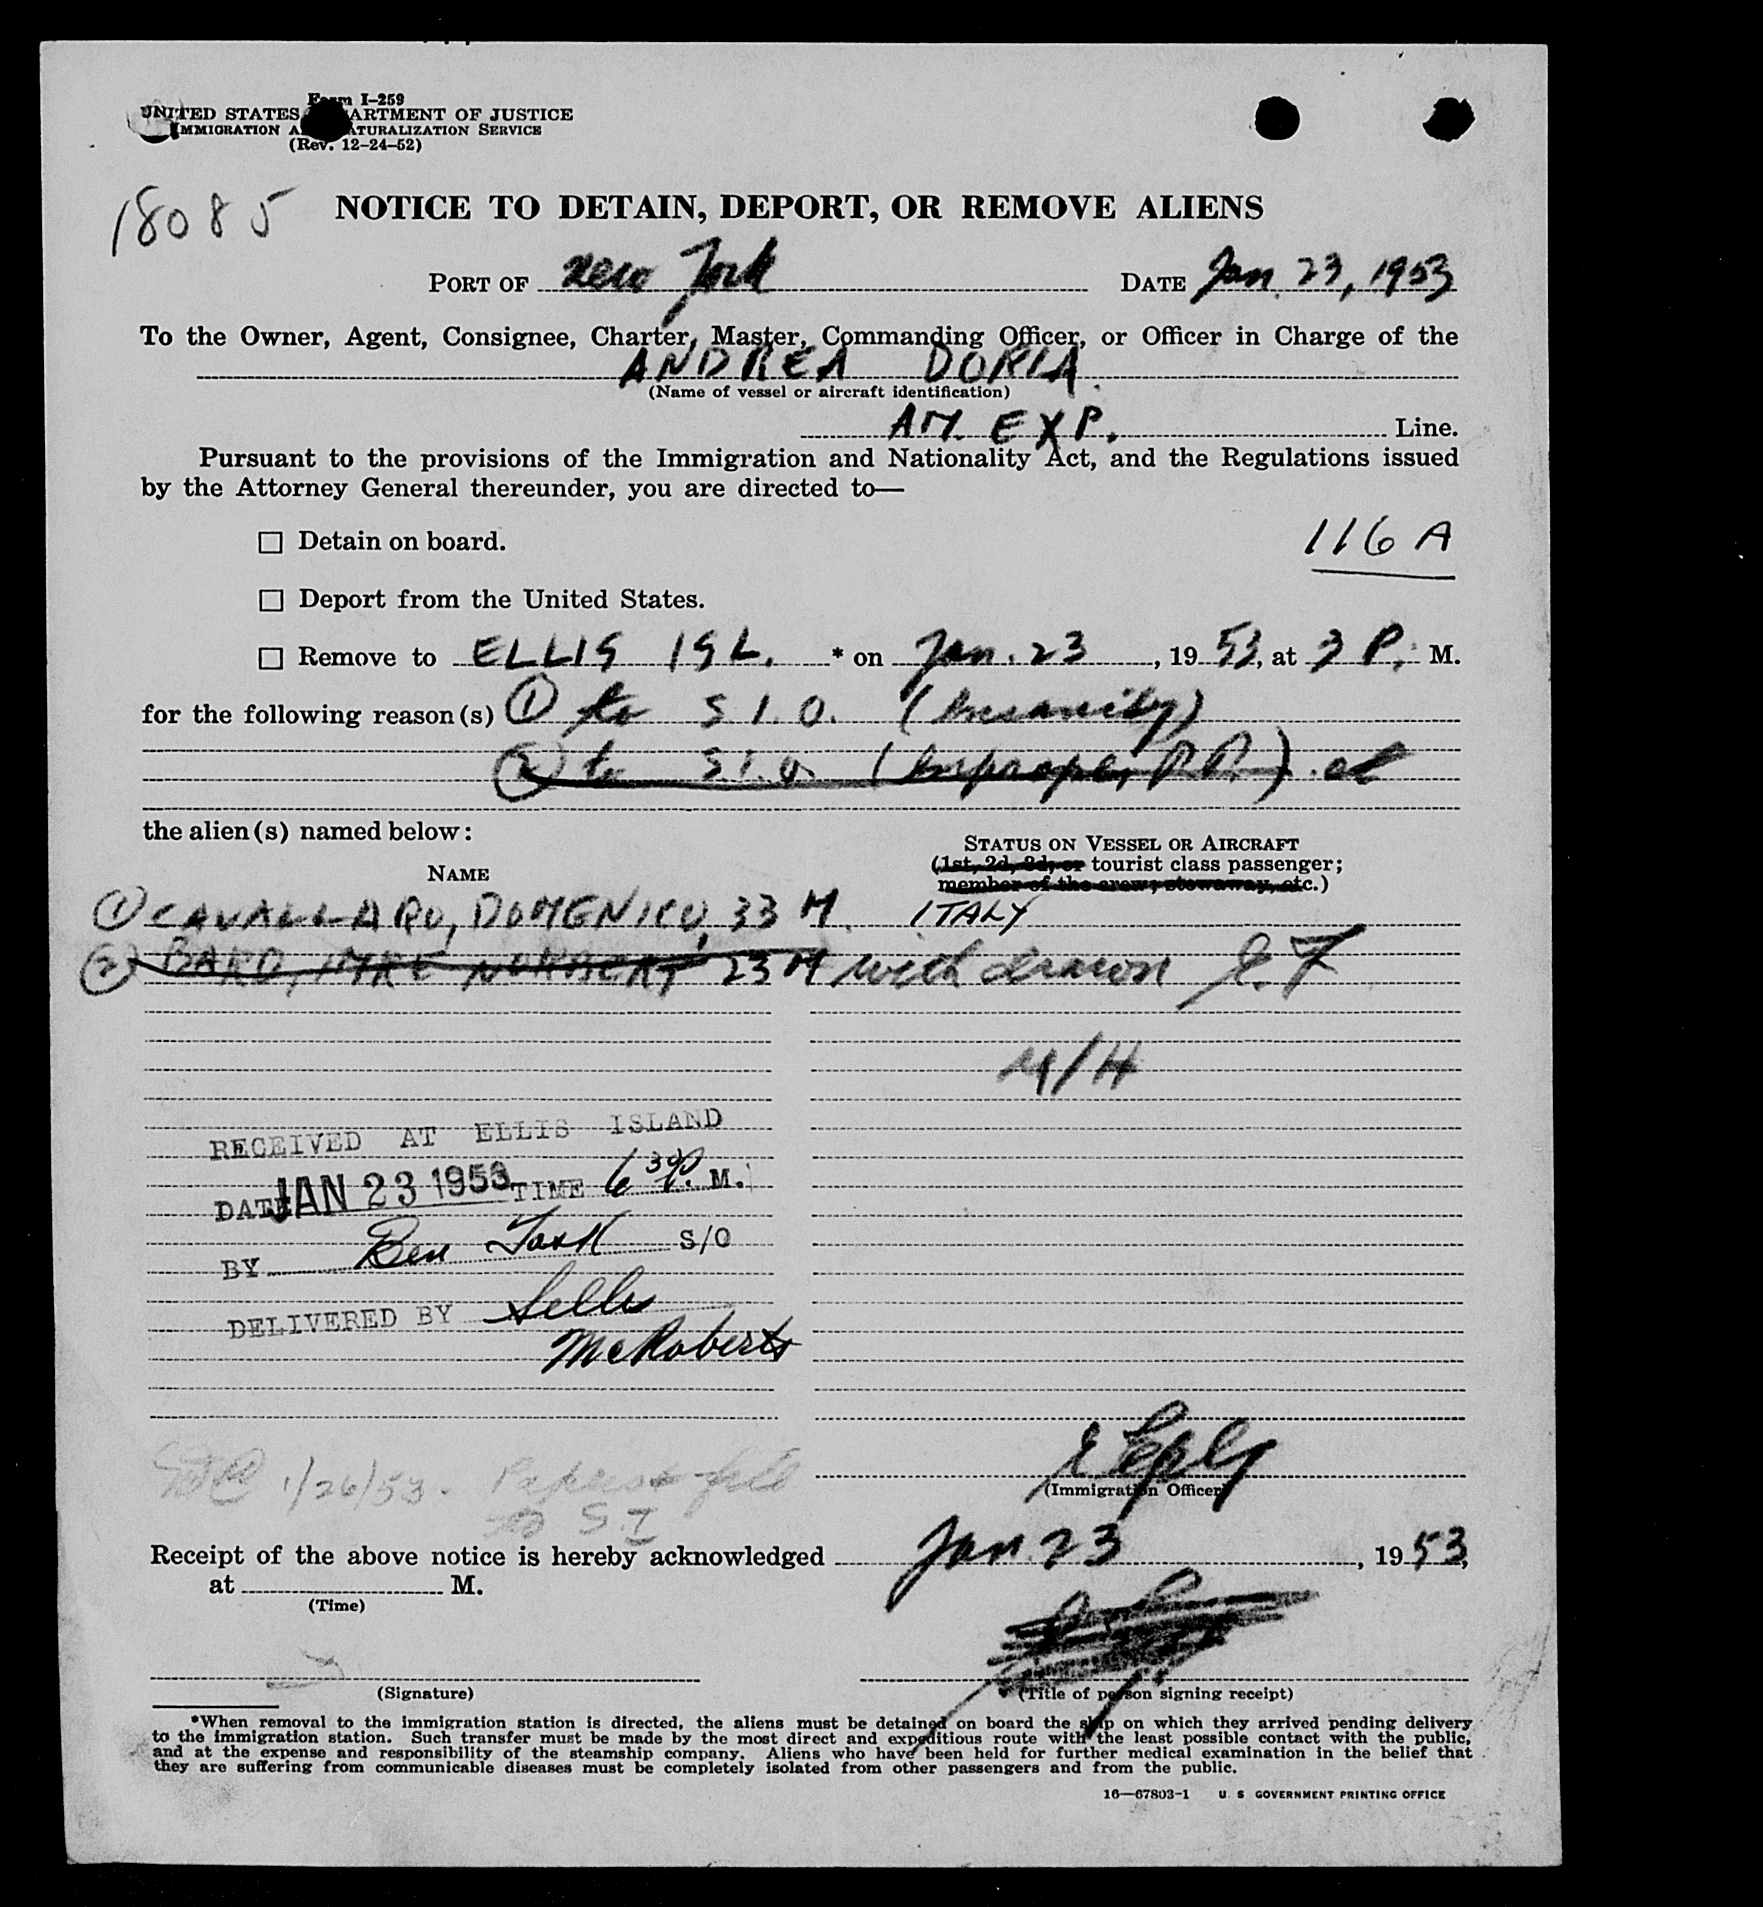 Form I-259
UNITED STATES DEPARTMENT OF JUSTICE
IMMIGRATION AND NATURALIZATION SERVICE
(Rev. 12-24-52)
18085
NOTICE TO DETAIN, DEPORT, OR REMOVE ALIENS
PORT OF New York DATE Jan. 23, 1953
To the Owner, Agent, Consignee, Charter, Master, Commanding Officer, or Officer in Charge of the
ANDREA DORIA
(Name of vessel or aircraft identification)
AM. EXP. Line.
Pursuant to the provisions of the Immigration and Nationality Act, and the Regulations issued
by the Attorney General thereunder, you are directed to—
☐ Detain on board.
116 A
☐ Deport from the United States.
☐ Remove to ELLIS ISL. * on Jan. 23, 1953, at 3 P. M.
for the following reason(s) ① to S.I.O. (Insanity)
② to S.I.O. (Improper P.P.)
the alien(s) named below:
STATUS ON VESSEL OR AIRCRAFT
(1st, 2d, 3d, or tourist class passenger;
NAME
member of the crew; stowaway, etc.)
① CAVALLARO, DOMENICO, 33 M. ITALY
② BARD, IMRE NORBERT 23 M withdrawn E.F
M/H
RECEIVED AT ELLIS ISLAND
DATE JAN 23 1953 TIME 6 30 P. M.
BY Ben Task S/O
DELIVERED BY Sells
McRoberts
(Immigration Officer)
1/26/53. file
to S.I
Receipt of the above notice is hereby acknowledged Jan. 23, 1953,
at M.
(Time)
(Signature) (Title of person signing receipt)
*When removal to the immigration station is directed, the aliens must be detained on board the ship on which they arrived pending delivery
to the immigration station. Such transfer must be made by the most direct and expeditious route with the least possible contact with the public,
and at the expense and responsibility of the steamship company. Aliens who have been held for further medical examination in the belief that
they are suffering from communicable diseases must be completely isolated from other passengers and from the public.
16—67803-1 U S GOVERNMENT PRINTING OFFICE